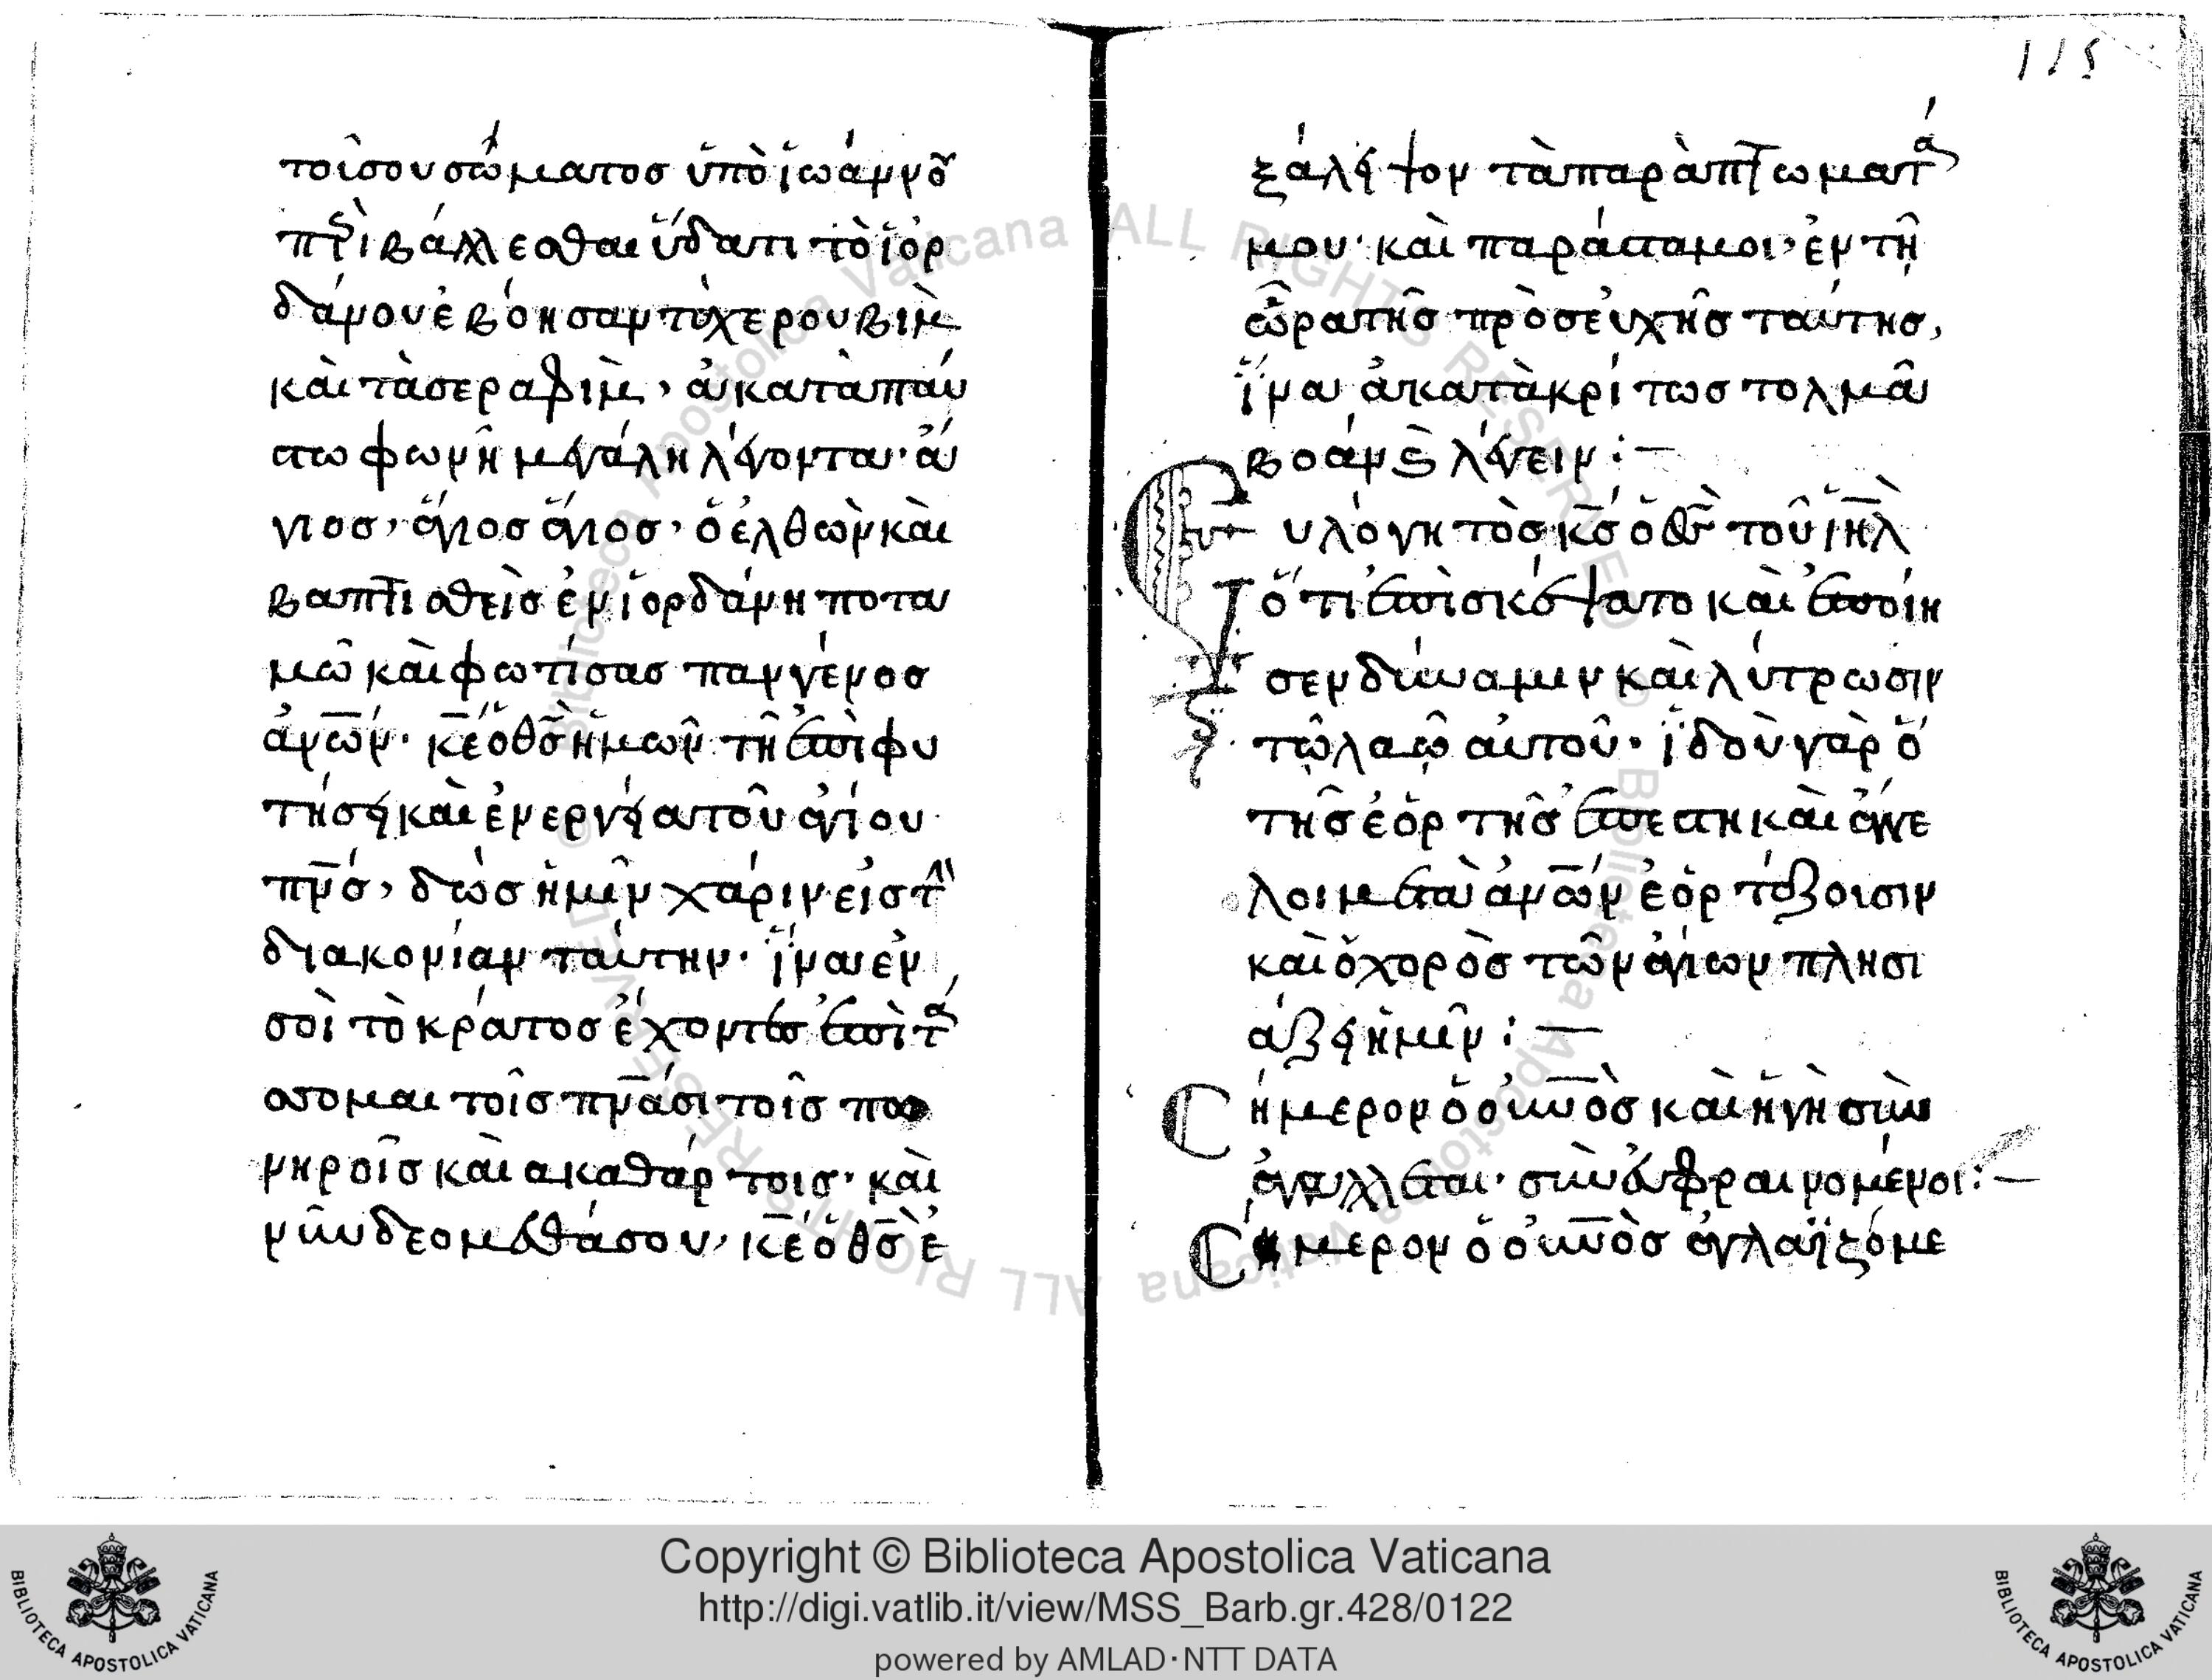 τοῖσουσώματοσ ὑπὸ ἰωάννου
περιβάλλεσθαι ὕδατι τὸ ἰορ
δάνου ἐβόησαν τὸ χερουβὶμ
καὶ τὰ σεραφὶμ, ἀκαταπαύ
στω φωνῆ μεγάλη λέγονται· ἅ
γιοσ, ἅγιοσ ἅγιοσ, ὁ ἐλθὼν καὶ
βαπτισθεὶσ ἐν ἰορδάνη ποτα
μῶ καὶ φωτίσασ πᾶν γένοσ
ἀνων· κε ὁ θσ ἡμῶν τῆ ἐπιφυ
τήσει καὶ ἐνεργεία τοῦ ἁγίου
πνσ, δὼσ ἡμῖν χάριν εἰσ τὴν
διακονίαν ταύτην· ἵνα ἐν
σοὶ τὸ κράτοσ ἔχοντεσ ἐπιτά
σσομαι τοῖσ πνασι τοῖσ πο
νηροῖσ καὶ ακαθάρτοισ· καὶ
νῦν δεομεθάσου, κε ὁ θσ ἐ
115
ξάλειψον τὰ παραπτώματά
μου· καὶ παράσταμοι, ἐν τῆ
ὥρα τῆσ προσευχῆσ ταύτησ,
ἵνα ἀκατακρίτωσ τολμᾶ
βοάν κ λέγειν :—
Ευλόγητὸσ κσ ὁ θσ τοῦ ιηλ
ὅτι ἐπισκέψατο καὶ ἐποίη
σεν δύναμιν καὶ λύτρωσιν
τῶ λαῶ αὐτοῦ· ἰδοὺ γὰρ ὁ
τῆσ ἑορτῆσ ἐπέστη καὶ ἄγγε
λοι μεταὶ ἀνων ἑορτάζοισιν
καὶ ὁ χορὸσ τῶν ἁγίων πλησι
άζει ἡμῖν :—
Σήμερον ὁ οὐνοσ καὶ ἡ γῆ σὺν
ἀγάλλεται· σὺν εὐφραινομένοι :—
Σήμερον ὁ οὐνοσ ἀγλαϊζόμε
Copyright © Biblioteca Apostolica Vaticana
http://digi.vatlib.it/view/MSS_Barb.gr.428/0122
powered by AMLAD·NTT DATA
BIBLIOTECA APOSTOLICA VATICANA
BIBLIOTECA APOSTOLICA VATICANA